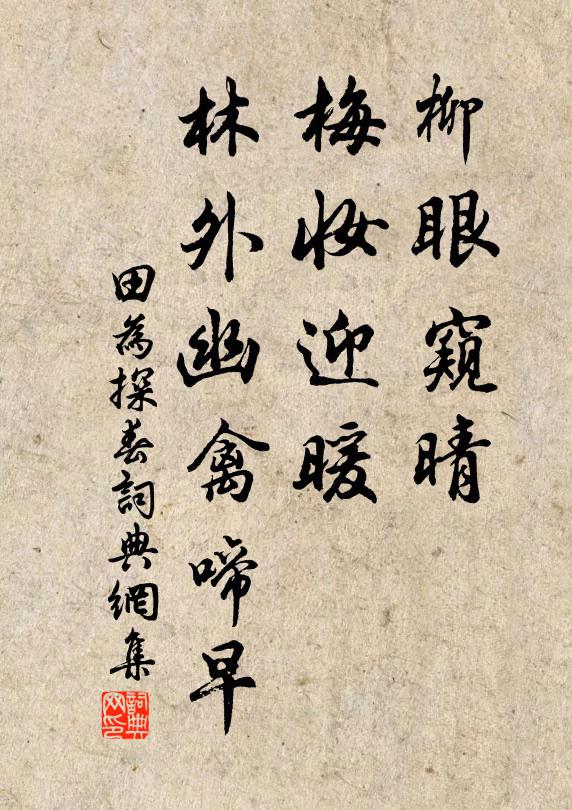 柳眼窺晴
梅妝迎暖
林外幽禽啼早
田為探春詞典網集
詞典网印